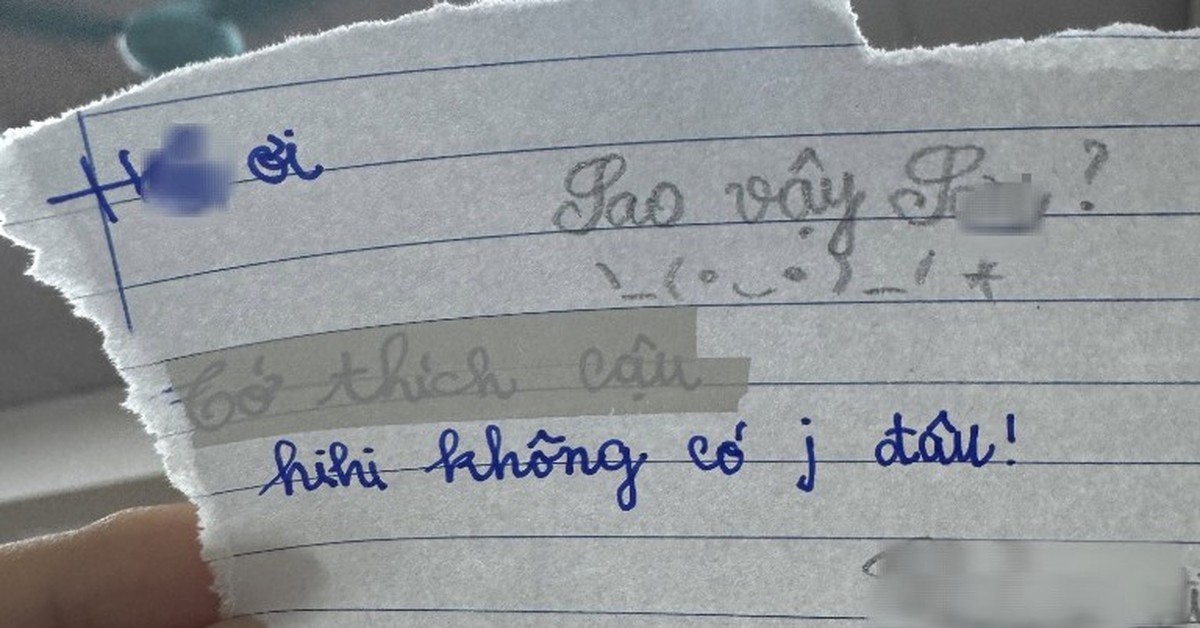 ơi
Sao vậy ?
\_(• ‿ •)_/ *
Tớ thích cậu
hihi không có j đâu!